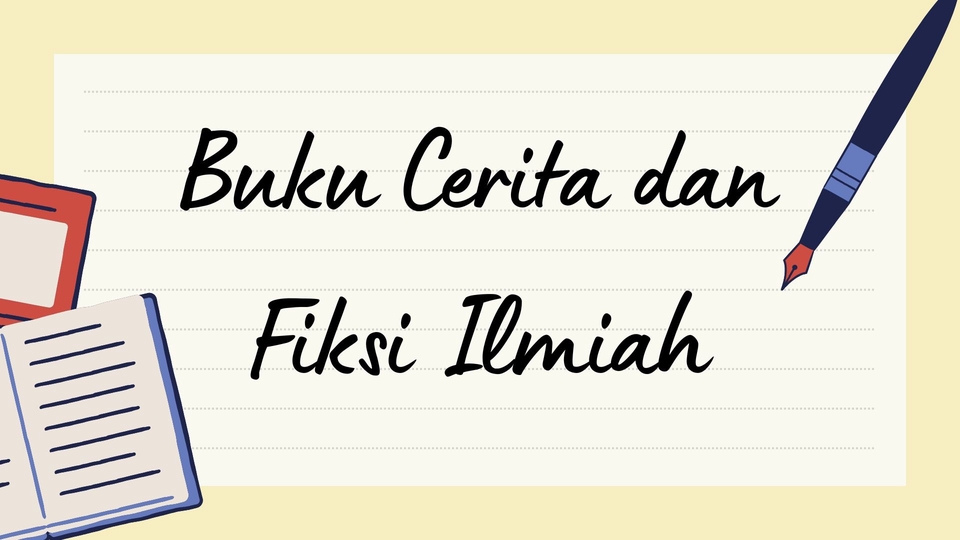 Buku Cerita dan
Fiksi Ilmiah